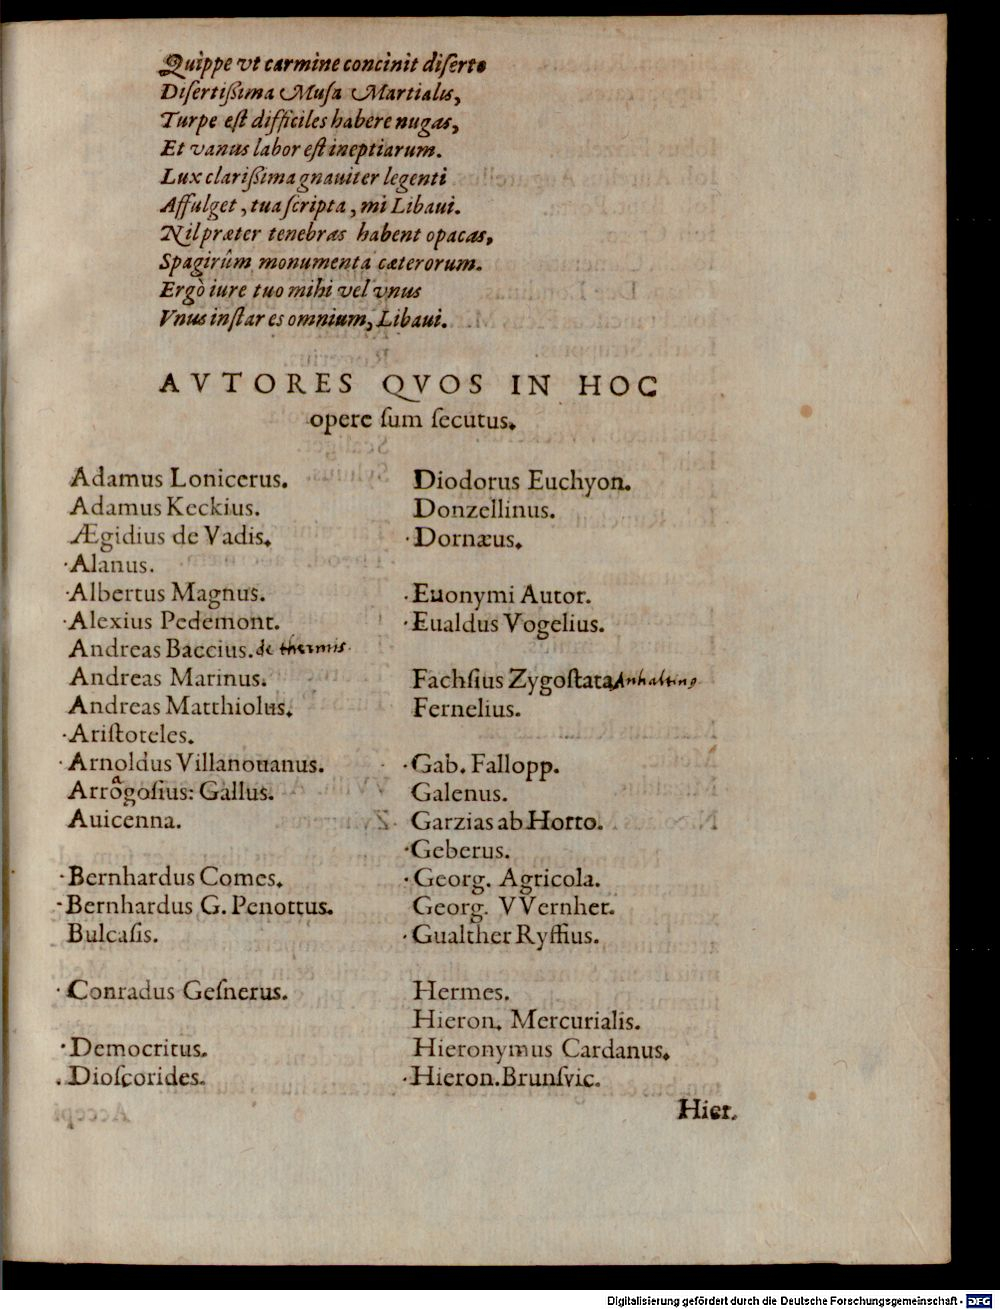 Quippe vt carmine concinit diſerto
Diſertißima Muſa Martialis,
Turpe eſt difficiles habere nugas,
Et vanus labor eſt ineptiarum.
Lux clarißima gnauiter legenti
Affulget, tua ſcripta, mi Libaui.
Nil præter tenebras habent opacas,
Spagirûm monumenta cæterorum.
Ergò iure tuo mihi vel vnus
Vnus inſtar es omnium, Libaui.
AVTORES QVOS IN HOC
opere ſum ſecutus.
Adamus Lonicerus.
Adamus Keckius.
Ægidius de Vadis.
·Alanus.
·Albertus Magnus.
·Alexius Pedemont.
Andreas Baccius. de thermis.
Andreas Marinus.
Andreas Matthiolus.
·Ariſtoteles.
·Arnoldus Villanouanus.
Arrogoſius: Gallus.
a
Auicenna.
·Bernhardus Comes.
-Bernhardus G. Penottus.
Bulcaſis.
·Conradus Geſnerus.
·Democritus.
.Dioſcorides.
Diodorus Euchyon.
Donzellinus.
·Dornæus.
.Euonymi Autor.
·Eualdus Vogelius.
Fachſius Zygoſtata Anhaltinq
Fernelius.
·Gab. Fallopp.
Galenus.
Garzias ab Horto.
·Geberus.
·Georg. Agricola.
Georg. VVernher.
·Gualther Ryffius.
Hermes.
Hieron. Mercurialis.
Hieronymus Cardanus.
·Hieron. Brunſvic.
Hier.
Digitalisierung gefördert durch die Deutsche Forschungsgemeinschaft - DFG